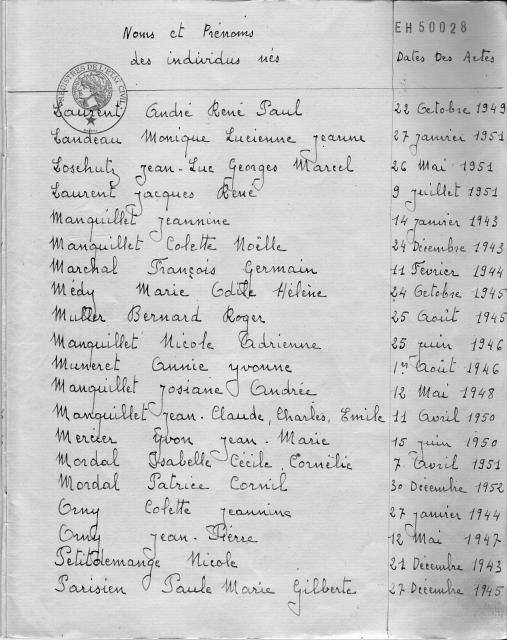 EH50028
Noms et Prénoms
des individus nés Dates Des Actes
REGISTRES DE L'ETAT CIVIL
Laurent André René Paul 22 Octobre 1949
Landeau Monique Lucienne Jeanne 27 janvier 1951
Loschutz Jean-Luc Georges Marcel 26 Mai 1951
Laurent Jacques René 9 juillet 1951
Manquillet Jeannine 14 janvier 1943
Manquillet Colette Noëlle 24 Décembre 1943
Marchal François Germain 11 Février 1944
Médy Marie Odile Hélène 24 Octobre 1945
Muller Bernard Roger 25 Août 1945
Manquillet Nicole Adrienne 25 juin 1946
Muneret Annie Yvonne 1er Août 1946
Manquillet Josiane Andrée 12 Mai 1948
Manquillet Jean-Claude, Charles, Emile 11 Avril 1950
Mercier Yvon Jean-Marie 15 juin 1950
Mordal Isabelle Cécile Cornélie 7 Avril 1951
Mordal Patrice Cornil 30 Décembre 1952
Orny Colette Jeannine 27 janvier 1944
Orny Jean-Pierre 12 Mai 1947
Petitdemange Nicole 21 Décembre 1943
Parisien Paule Marie Gilberte 27 Décembre 1945